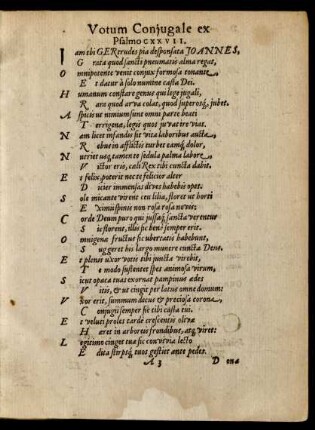 Votum Conjugale ex
Psalmo CXXVII.
I am tibi GERtrudes pia desponsata JOANNES,
G rata quod sancti pneumatis alma regat,
O mnipotente venit conjux formosa tonante
E t datur à solo numine casta Dei.
H umanum constare genus qui lege jugali,
R aro quod arva colat, quod superosq; jubet.
A spicis ut nimium sint omni parte beati
T errigenæ, legis quos juvat ire vias.
N am licet infandus sit vita laboribus aucta
R obue in afflictis turbet tamq; dolor,
N utriet usq; tamen te sedula palma labore
V ictor eris, cali Rex tibi cuncta dabit.
E t felix poteris nocte felicier alter
D icier immensas dives habebis opes.
S ole micante virent ceu lilia, floret ut horti
E ximii spinis non rosa rosa nevus:
C orde Deum puro qui jussaq; sancta verentur
S ic florens, illis pc bene semper erit.
O mnigena fructus sic ubertatis habebunt,
S uggeret his largo munere cuncta Deus.
E t plenis uxor votis tibi juncta virebis,
T e modo sustentet spes animosa virum,
S icut opaca tuas exornat pampinus ades
V itis, & ut cingit per latus omne domum:
V xor erit, summum decus & preciosa corona,
C onjugii semper sic tibi casta tui.
E t veluti proles tardè crescentis olivæ
H æret in arbores frondibus, atq; viret:
L egitimo cinget tua sic convivia lecto
E dita stirpsq; tuos gestiet ante pedes.
A 3 D ona